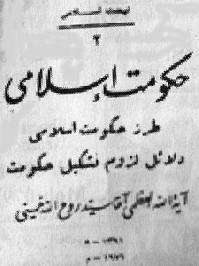 ۲
حكومت إسلامي
طرز حكومت اسلامى
دلائل لزوم تشكيل حكومت
آية الله العظمى آقا سيد روح الله خمينى